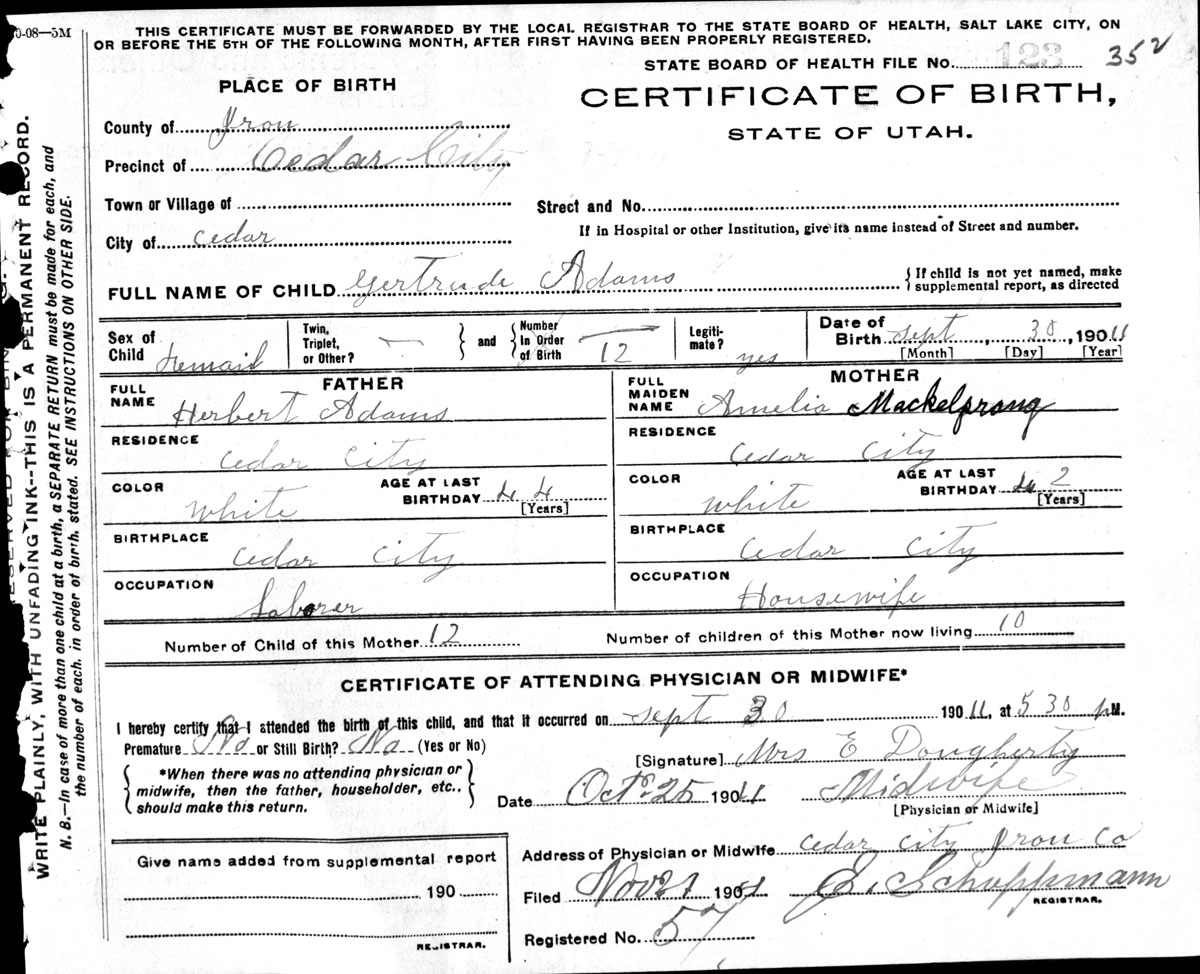 0-08—5M
THIS CERTIFICATE MUST BE FORWARDED BY THE LOCAL REGISTRAR TO THE STATE BOARD OF HEALTH, SALT LAKE CITY, ON
OR BEFORE THE 5TH OF THE FOLLOWING MONTH, AFTER FIRST HAVING BEEN PROPERLY REGISTERED.
STATE BOARD OF HEALTH FILE No. 123 352
PLACE OF BIRTH
CERTIFICATE OF BIRTH,
STATE OF UTAH.
County of Iron
Precinct of Cedar City
Town or Village of
Street and No.
City of Cedar
If in Hospital or other Institution, give its name instead of Street and number.
FULL NAME OF CHILD Gertrude Adams
{ If child is not yet named, make
supplemental report, as directed
Sex of Child Femail
Twin, Triplet, or Other? —
and
Number In Order of Birth 12
Legiti-mate? yes
Date of Birth Sept 30, 190 11
[Month] [Day] [Year]
FATHER
FULL NAME Herbert Adams
RESIDENCE Cedar City
COLOR White
AGE AT LAST BIRTHDAY 44 [Years]
BIRTHPLACE Cedar City
OCCUPATION Laborer
MOTHER
FULL MAIDEN NAME Amelia Mackelprang
RESIDENCE Cedar City
COLOR White
AGE AT LAST BIRTHDAY 42 [Years]
BIRTHPLACE Cedar City
OCCUPATION Housewife
Number of Child of this Mother 12
Number of children of this Mother now living 10
CERTIFICATE OF ATTENDING PHYSICIAN OR MIDWIFE*
I hereby certify that I attended the birth of this child, and that it occurred on Sept 30 190 11, at 5 30 P.M.
Premature No or Still Birth? No (Yes or No)
[Signature] Mrs E Dougherty
*When there was no attending physician or
midwife, then the father, householder, etc.,
should make this return.
Date Oct 25 190 11 Midwife
[Physician or Midwife]
Give name added from supplemental report
190
REGISTRAR.
Address of Physician or Midwife Cedar City Iron Co
Filed Nov 27 190 11 E. Schoppmann
REGISTRAR.
Registered No. 57
WRITE PLAINLY, WITH UNFADING INK--THIS IS A PERMANENT RECORD.
N. B.—In case of more than one child at a birth, a SEPARATE RETURN must be made for each, and
the number of each, in order of birth, stated. SEE INSTRUCTIONS ON OTHER SIDE.